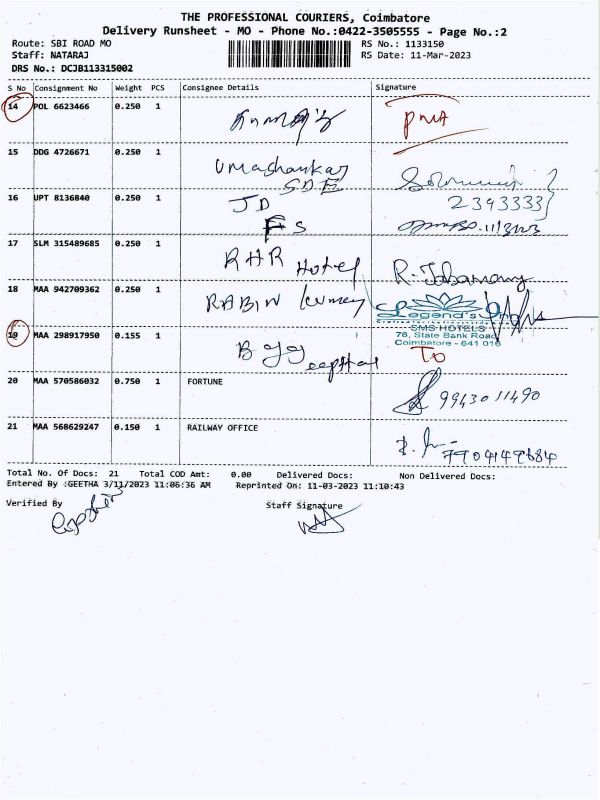 THE PROFESSIONAL COURIERS, Coimbatore
Delivery Runsheet - MO - Phone No.:0422-3505555 - Page No.:2
Route: SBI ROAD MO
RS No.: 1133150
Staff: NATARAJ
RS Date: 11-Mar-2023
DRS No.: DCJB113315002
S No Consignment No Weight PCS Consignee Details Signature
14 POL 6623466 0.250 1
15 DDG 4726671 0.250 1 Umashankar
SDE
2393333
16 UPT 8136840 0.250 1 JD
FS
17 SLM 315489685 0.250 1 RHR Hotel
18 MAA 942709362 0.250 1 RABIN
Legend's
SMS HOTELS
76, State Bank Road
Coimbatore - 641 018
19 MAA 298917950 0.155 1
TO
20 MAA 570586032 0.750 1 FORTUNE 9943011490
21 MAA 568629247 0.150 1 RAILWAY OFFICE 7904149684
Total No. Of Docs: 21 Total COD Amt: 0.00 Delivered Docs: Non Delivered Docs:
Entered By :GEETHA 3/11/2023 11:06:36 AM Reprinted On: 11-03-2023 11:10:43
Verified By Staff Signature